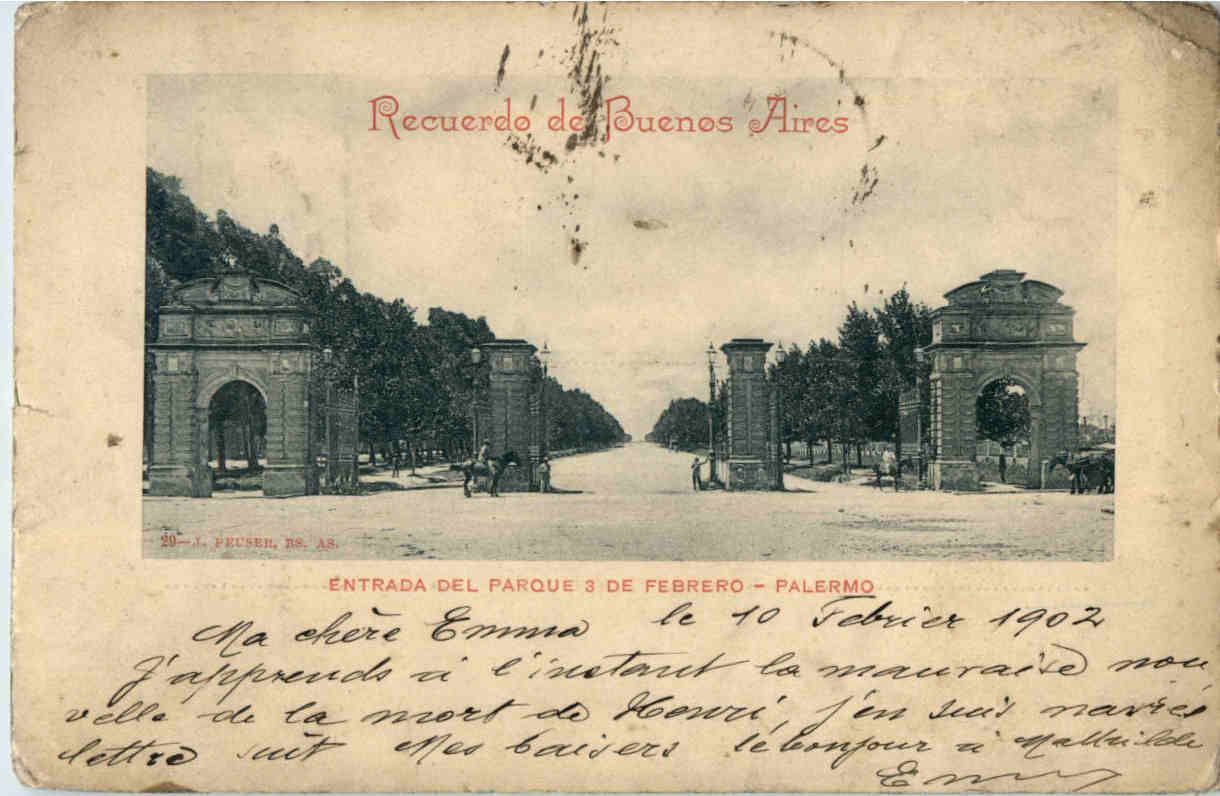 Recuerdo de Buenos Aires
29—J. PEUSER, BS. AS.
ENTRADA DEL PARQUE 3 DE FEBRERO – PALERMO
Ma chère Emma le 10 Febrier 1902
J'apprends à l'instant la mauvaise nou
velle de la mort de Henri, j'en suis navrée
lettre suit Mes baisers le bonjour à Mathilde